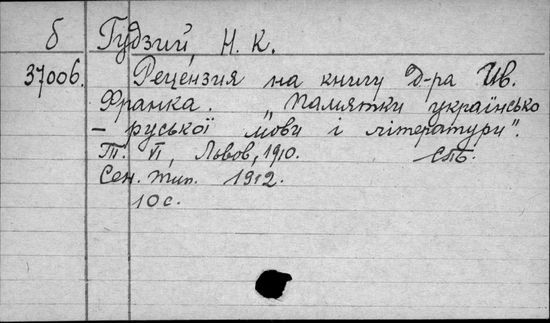 б Гудзий, Н. К.
37006. Рецензия на книгу Д-ра Ив.
Франка. „Памятки українсько
- руської мови і літератури".
Т. II, Львов, 1910. СПб.
Сен. тип. 1912.
10 с.